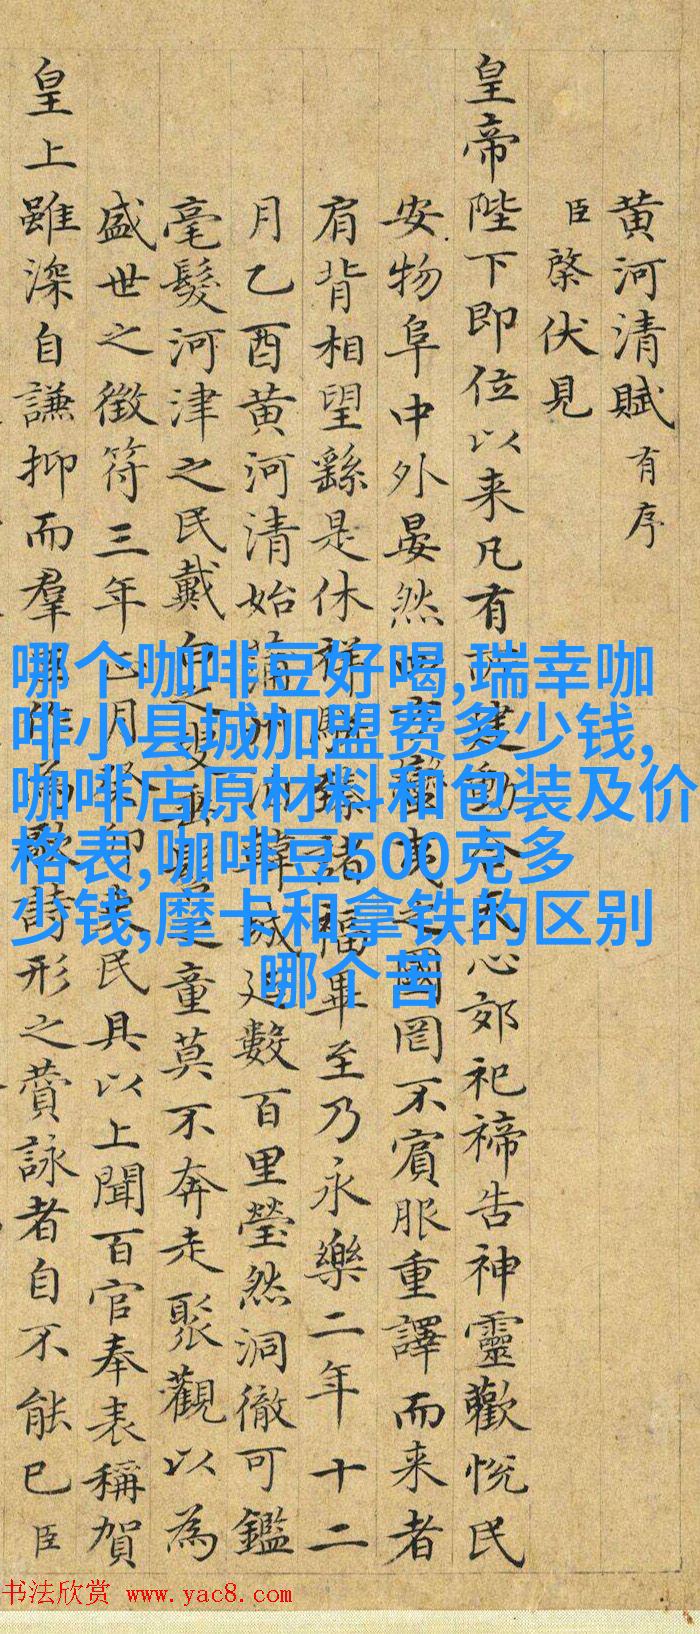 黄河清賦有序
臣棨伏見
皇帝陛下即位以来凡有
心郊祀禘告神靈歡恱民
安物阜中外晏然
國罔不賔服重譯而来者
肩背相望繇是休祥
諸福畢至乃永樂二年十二
月乙酉黄河清始
韓城廷數百里瑩然洞徹可鑑
毫髮河津之民戴白之
童莫不奔走聚觀以為
盛世之徴符三年
民具以上聞百官奉表稱賀
皇上雖深自謙抑而羣
詩形之賛詠者自不能已臣
哪个咖啡豆好喝,瑞幸咖
啡小县城加盟费多少钱,
咖啡店原材料和包装及价
格表,咖啡豆500克多
少钱,摩卡和拿铁的区别
哪个苦
书法欣赏 www.yac8.com